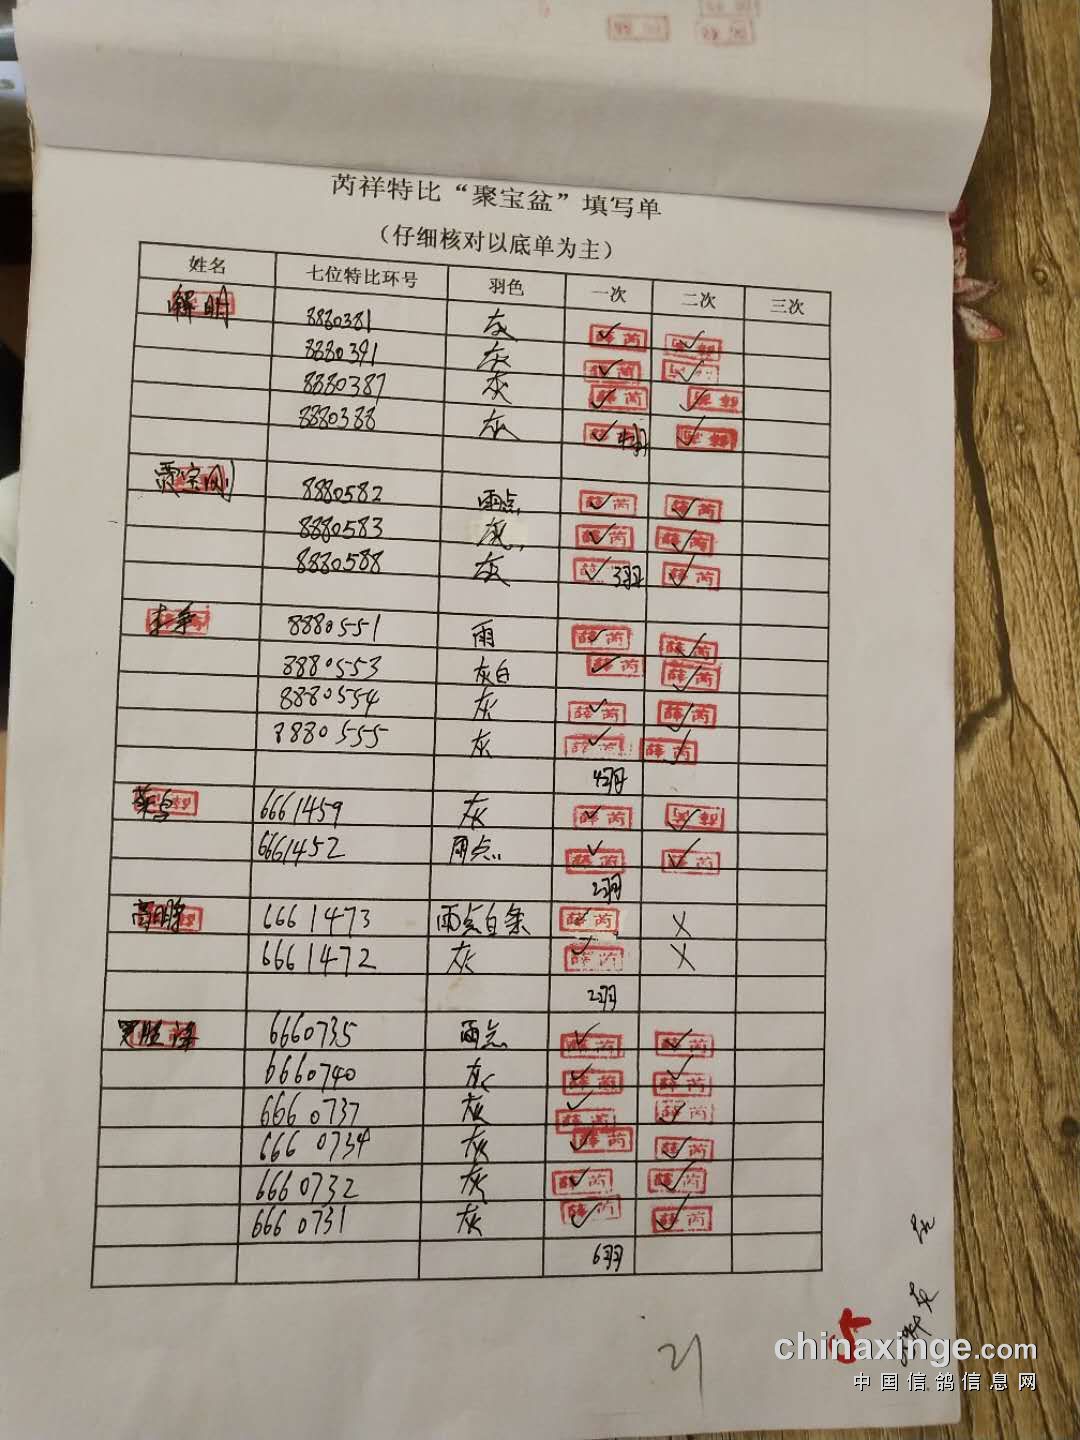 芮祥特比“聚宝盆”填写单
（仔细核对以底单为主）
姓名 七位特比环号 羽色 一次 二次 三次
解明 8880381 灰 薛芮
8880391 灰 薛芮
8880387 灰 薛芮
8880388 灰 4羽
贾宗刚 8880582 雨点 薛芮 薛芮
8880583 薛芮 薛芮
8880588 灰 3羽 薛芮
8880551 雨 薛芮 薛芮
8880553 灰白 薛芮 薛芮
8880554 灰 薛芮 薛芮
8880555 灰 薛芮 薛芮
4羽
6661459 灰 薛芮
6661452 雨点 薛芮 薛芮
2羽
6661473 雨点白条 薛芮 X
6661472 灰 薛芮 X
2羽
6660735 雨点 薛芮 薛芮
6660740 灰 薛芮 薛芮
6660737 灰 薛芮 薛芮
6660734 灰 薛芮 薛芮
6660732 灰 薛芮 薛芮
6660731 灰 薛芮 薛芮
6羽
21
chinaxinge.com
中国信鸽信息网